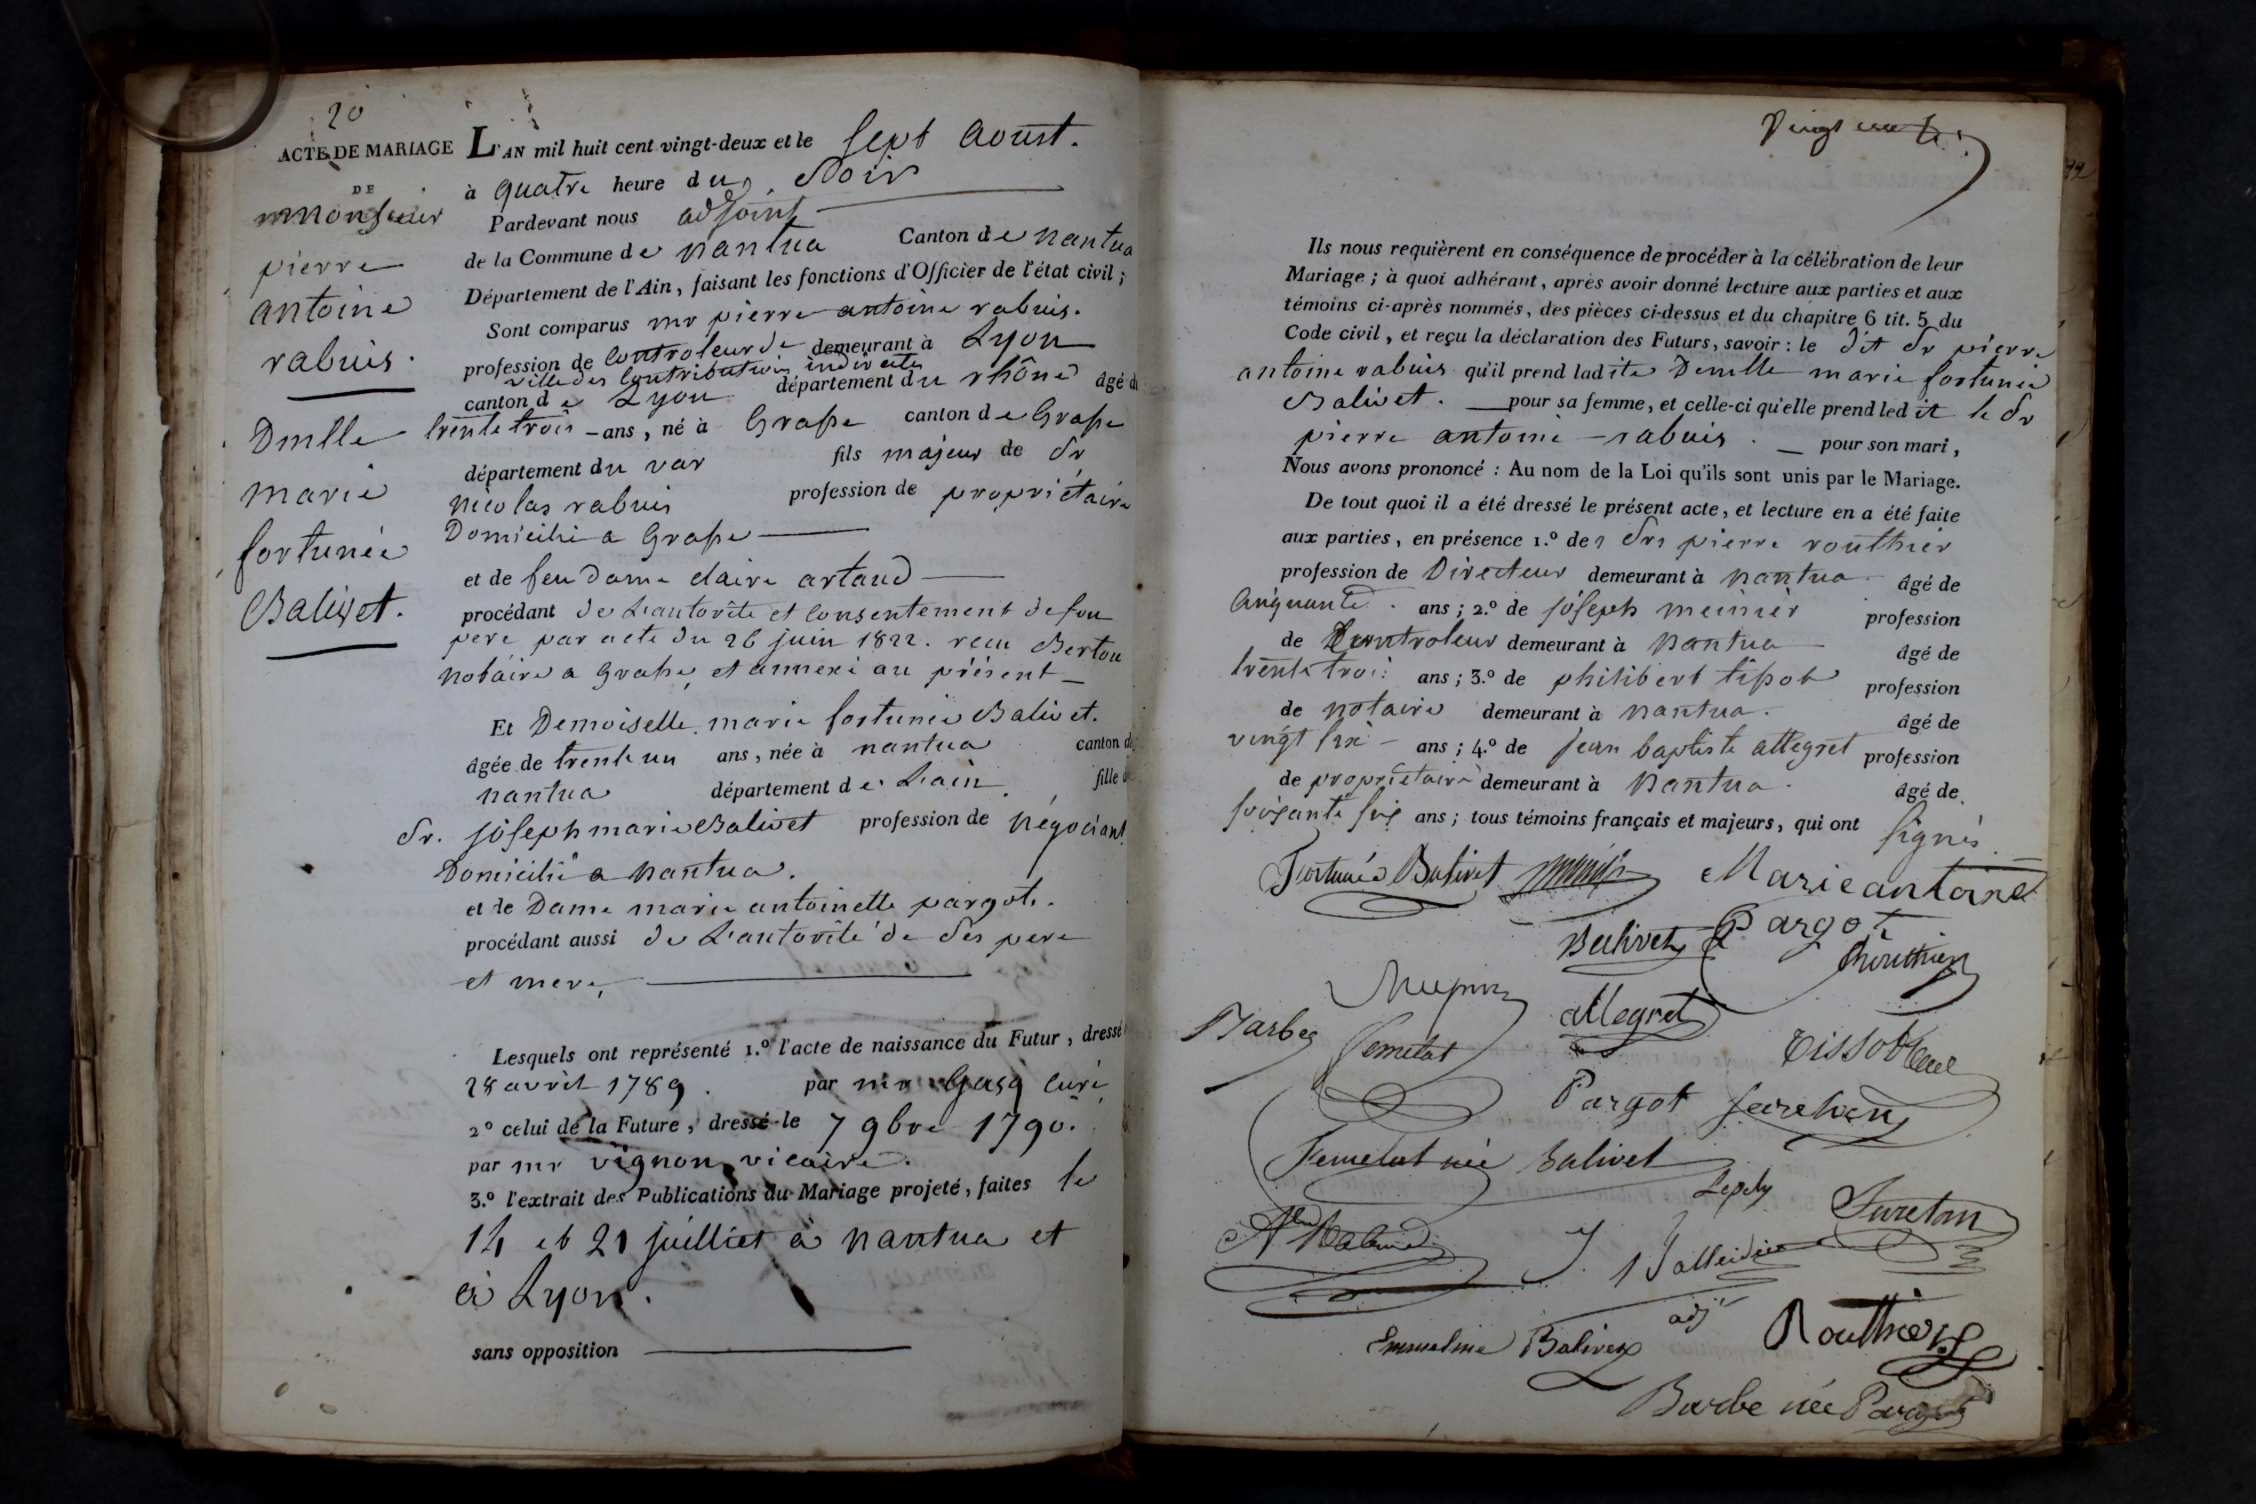 20
ACTE DE MARIAGE
DE
monsieur
pierre
antoine
rabuis.
Dmlle
marie
fortunée
Balivet.
L'AN mil huit cent vingt-deux et le sept aoust.
à quatre heure du Soir
Pardevant nous adjoint
de la Commune de nantua Canton de nantua
Département de l'Ain, faisant les fonctions d'Officier de l'état civil;
Sont comparus mr pierre antoine rabuis.
profession de Controleur de demeurant à Lyon
ville des Contributions indirectes
canton de Lyon département du rhône âgé d
trente trois ans, né à Grasse canton de Grasse
département du var fils majeur de Sr
nicolas rabuis profession de propriétaire
Domicilié a Grasse
et de feu Dame claire artaud
procédant de L'autorite et consentement de son
pere par acte du 26 juin 1822. recu Bertou
notaire a grasse, et annexé au présent
Et Demoiselle marie fortunée Balivet.
âgée de trente un ans, née à nantua canton d
nantua département de L'ain fille d
Sr. joseph marie Balivet profession de négociant
Domicilié a nantua.
et de Dame marie antoinette pargot.
procédant aussi de L'autorité de ses pere
et mere,
Lesquels ont représenté 1.º l'acte de naissance du Futur, dressé
28 avril 1789. par mr Gasq curé
2º celui de la Future, dressé le 7 9bre 1790.
par mr vignon vicaire.
3.º l'extrait des Publications du Mariage projeté, faites le
14 et 21 juilliet à nantua et
à Lyon.
sans opposition
Ils nous requièrent en conséquence de procéder à la célébration de leur
Mariage; à quoi adhérant, après avoir donné lecture aux parties et aux
témoins ci-après nommés, des pièces ci-dessus et du chapitre 6 tit. 5 du
Code civil, et reçu la déclaration des Futurs, savoir: le dit Sr pierre
antoine rabuis qu'il prend ladite Demlle marie fortunée
Balivet. pour sa femme, et celle-ci qu'elle prend ledit le Sr
pierre antoine rabuis. pour son mari,
Nous avons prononcé: Au nom de la Loi qu'ils sont unis par le Mariage.
De tout quoi il a été dressé le présent acte, et lecture en a été faite
aux parties, en présence 1.º des Srs pierre routhier
profession de Directeur demeurant à nantua âgé de
cinquante. ans; 2.º de joseph meinier profession
de Controleur demeurant à nantua âgé de
trente trois ans; 3.º de philibert tissot profession
de notaire demeurant à nantua. âgé de
vingt six ans; 4.º de jean baptiste allegret profession
de propriétaire demeurant à nantua. âgé de
soixante six ans; tous témoins français et majeurs, qui ont signés.
Fortunée Balivet Marie antoine
Balivet Pargot
Routhier
allegret
Barbe Femelat Tissot
Pargot
Femelat née Balivet
Furetan
adjt
Emmeline Balivet Routhier
Barbe née Pargot